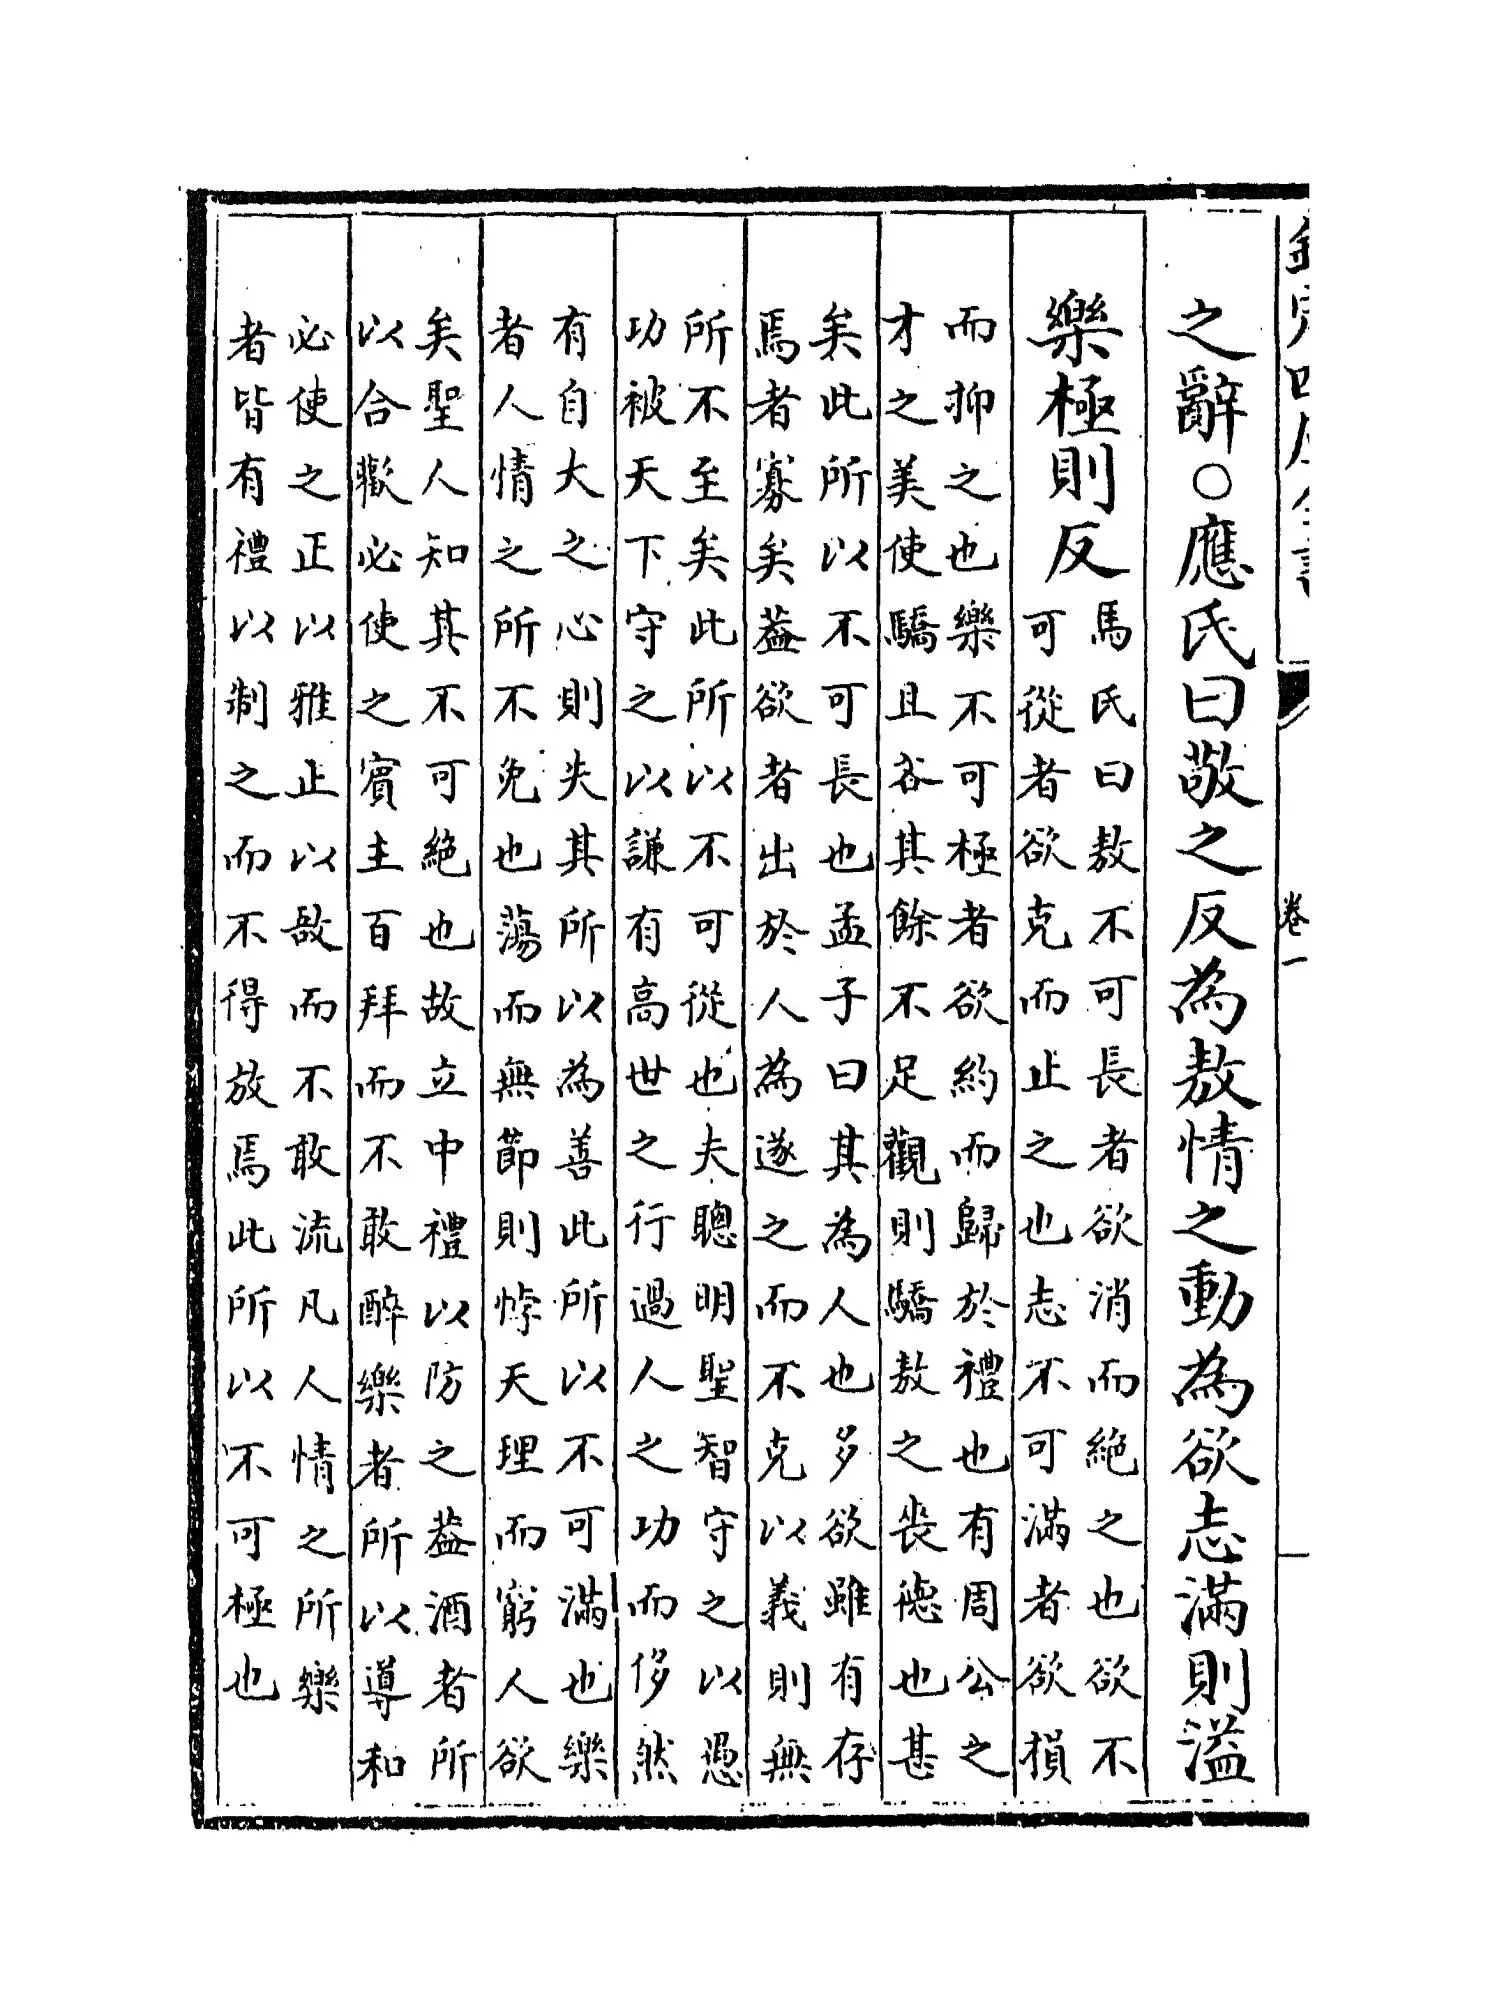 欽定四庫全書
卷一
之辭○應氏曰敬之反為敖情之動為欲志滿則溢
樂極則反
馬氏曰敖不可長者欲消而絕之也欲不
可從者欲克而止之也志不可滿者欲損
而抑之也樂不可極者欲約而歸於禮也有周公之
才之美使驕且吝其餘不足觀則驕敖之喪德也甚
矣此所以不可長也孟子曰其為人也多欲雖有存
焉者寡矣葢欲者出於人為遂之而不克以義則無
所不至矣此所以不可從也夫聰明聖智守之以愚
功被天下守之以謙有高世之行過人之功而侈然
有自大之心則失其所以為善此所以不可滿也樂
者人情之所不免也蕩而無節則悖天理而窮人欲
矣聖人知其不可絕也故立中禮以防之葢酒者所
以合歡必使之賓主百拜而不敢醉樂者所以導和
必使之正以雅止以敔而不敢流凡人情之所樂
者皆有禮以制之而不得放焉此所以不可極也